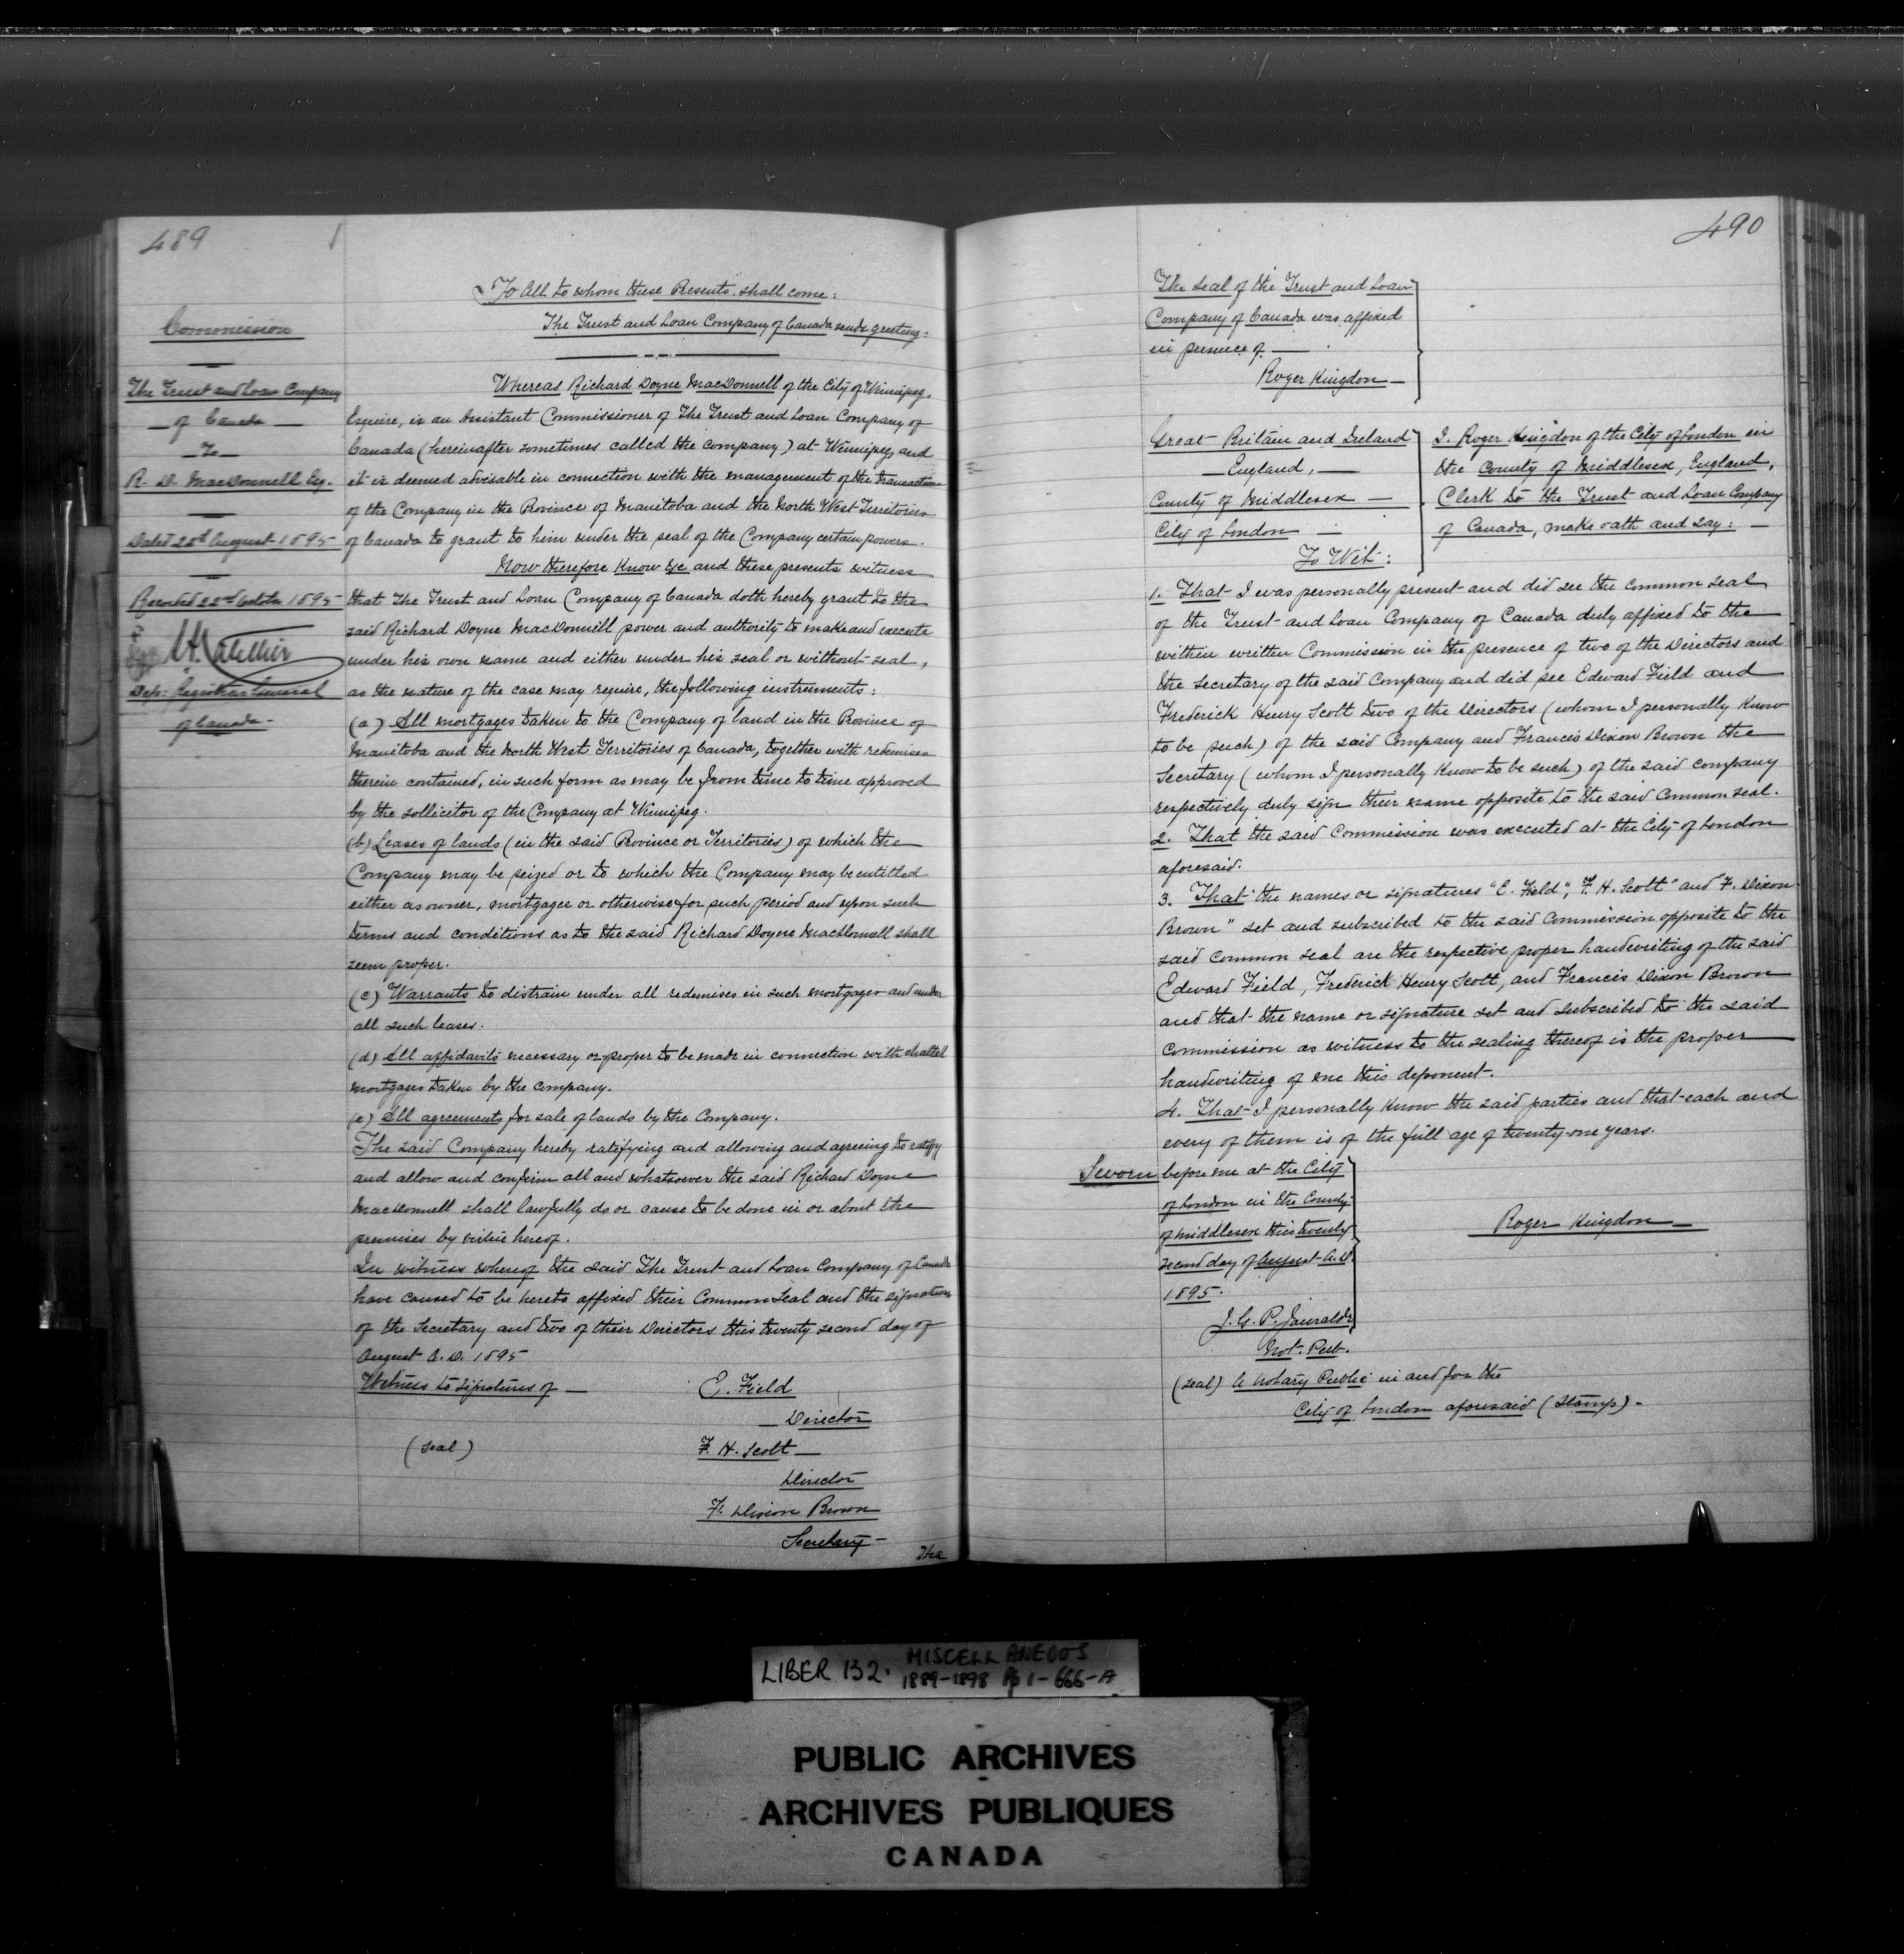 489
Commission
The Trust and Loan Company
of Canada
To
R. D. MacDonnell Esq.
Dated 22d August 1895
Recorded 22nd October 1895
Dep: Registrar General
of Canada
To All to whom these Presents shall come:
The Trust and Loan Company of Canada sends greeting:
Whereas Richard Doyne MacDonnell of the City of Winnipeg,
Esquire, is an Assistant Commissioner of The Trust and Loan Company of
Canada (hereinafter sometimes called the Company) at Winnipeg, and
it is deemed advisable in connection with the management of the transactions
of the Company in the Province of Manitoba and the North West Territories
of Canada to grant to him under the seal of the Company certain powers.
Now therefore Know Ye and these presents witness
that The Trust and Loan Company of Canada doth hereby grant to the
said Richard Doyne MacDonnell power and authority to make and execute
under his own name and either under his seal or without seal,
as the nature of the case may require, the following instruments:
(a) All mortgages taken to the Company of land in the Province of
Manitoba and the North West Territories of Canada, together with redemises
therein contained, in such form as may be from time to time approved
by the sollicitor of the Company at Winnipeg.
(b) Leases of lands (in the said Province or Territories) of which the
Company may be seized or to which the Company may be entitled
either as owner, mortgagee or otherwise for such period and upon such
terms and conditions as to the said Richard Doyne MacDonnell shall
seem proper.
(c) Warrants to distrain under all redemises in such mortgages and under
all such leases.
(d) All affidavits necessary or proper to be made in connection with chattel
mortgages taken by the company.
(e) All agreements for sale of lands by the Company.
The said Company hereby ratifying and allowing and agreeing to ratify
and allow and confirm all and whatsoever the said Richard Doyne
MacDonnell shall lawfully do or cause to be done in or about the
premises by virtue hereof.
In witness whereof the said The Trust and Loan Company of Canada
have caused to be hereto affixed their Common Seal and the signatures
of the Secretary and two of their Directors this twenty second day of
August A.D. 1895
Witness to signatures of
E. Field
Director
(seal)
F. H. Scott
Director
F. Dixon Brown
Secretary
The
490
The Seal of the Trust and Loan
Company of Canada was affixed
in presence of
Roger Kingdon
Great Britain and Ireland
England,
County of Middlesex
City of London
To Wit:
I. Roger Kingdon of the City of London in
the County of Middlesex, England,
Clerk to the Trust and Loan Company
of Canada, make oath and say:
1. That I was personally present and did see the Common Seal
of the Trust and Loan Company of Canada duly affixed to the
within written Commission in the presence of two of the Directors and
the Secretary of the said Company and did see Edward Field and
Frederick Henry Scott two of the Directors (whom I personally know
to be such) of the said Company and Francis Dixon Brown the
Secretary (whom I personally know to be such) of the said company
respectively duly sign their name opposite to the said Common seal.
2. That the said Commission was executed at the City of London
aforesaid.
3. That the names or signatures "E. Field", F. H. Scott" and "F. Dixon
Brown" set and subscribed to the said Commission opposite to the
said Common seal are the respective proper handwriting of the said
Edward Field, Frederick Henry Scott, and Francis Dixon Brown
and that the name or signature set and subscribed to the said
Commission as witness to the sealing thereof is the proper
handwriting of me this deponent.
4. That I personally know the said parties and that each and
every of them is of the full age of twenty-one years.
Sworn before me at the City
of London in the County
of Middlesex this twenty
second day of August A.D.
1895.
Roger Kingdon
J. G. P.
Not. Pub.
(seal) A Notary Public in and for the
City of London aforesaid (Stamp)
LIBER 132. MISCELLANEOUS
1889-1898 Pg 1-666-A
PUBLIC ARCHIVES
ARCHIVES PUBLIQUES
CANADA